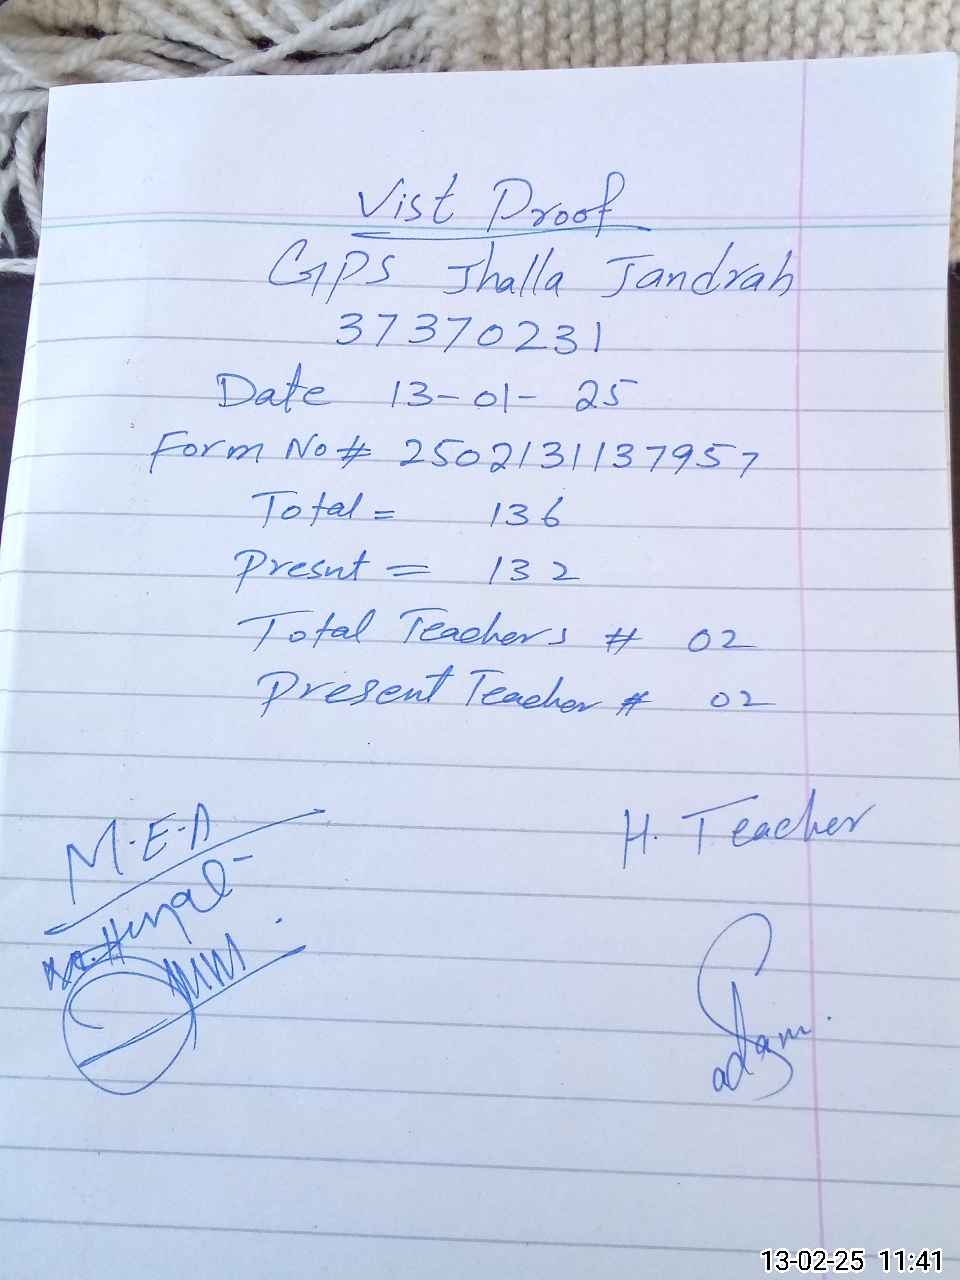 Vist Proof
GPS Jhalla Jandrah
37370231
Date 13-01-25
Form No # 2502131137957
Total = 136
Presnt = 132
Total Teachers # 02
Present Teacher # 02
M.E.A
H. Teacher
13-02-25 11:41